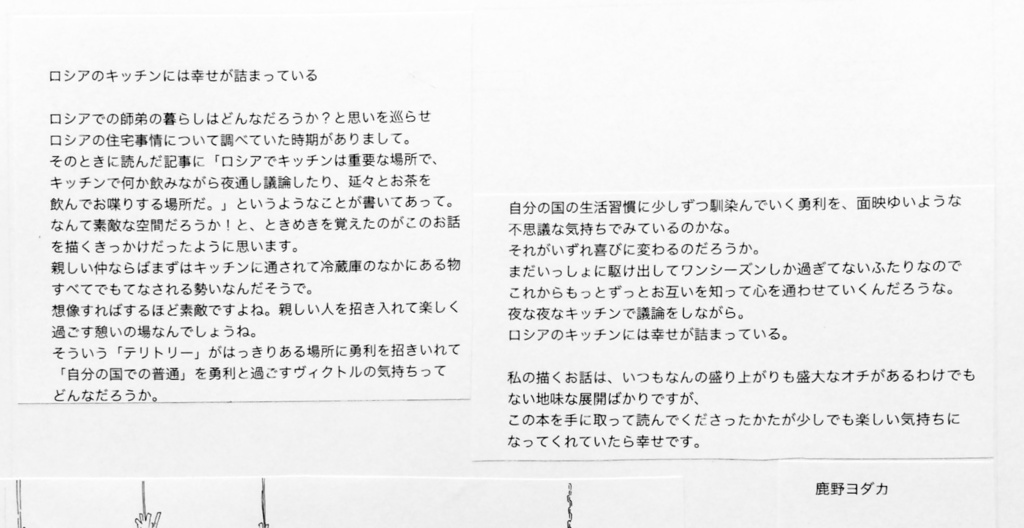 ロシアのキッチンには幸せが詰まっている
ロシアでの師弟の暮らしはどんなだろうか？と思いを巡らせ
ロシアの住宅事情について調べていた時期がありまして。
そのときに読んだ記事に「ロシアでキッチンは重要な場所で、
キッチンで何か飲みながら夜通し議論したり、延々とお茶を
飲んでお喋りする場所だ。」というようなことが書いてあって。
なんて素敵な空間だろうか！と、ときめきを覚えたのがこのお話
を描くきっかけだったように思います。
親しい仲ならばまずはキッチンに通されて冷蔵庫のなかにある物
すべてでもてなされる勢いなんだそうで。
想像すればするほど素敵ですよね。親しい人を招き入れて楽しく
過ごす憩いの場なんでしょうね。
そういう「テリトリー」がはっきりある場所に勇利を招きいれて
「自分の国での普通」を勇利と過ごすヴィクトルの気持ちって
どんなだろうか。
自分の国の生活習慣に少しずつ馴染んでいく勇利を、面映ゆいような
不思議な気持ちでみているのかな。
それがいずれ喜びに変わるのだろうか。
まだいっしょに駆け出してワンシーズンしか過ぎてないふたりなので
これからもっとずっとお互いを知って心を通わせていくんだろうな。
夜な夜なキッチンで議論をしながら。
ロシアのキッチンには幸せが詰まっている。
私の描くお話は、いつもなんの盛り上がりも盛大なオチがあるわけでも
ない地味な展開ばかりですが、
この本を手に取って読んでくださったかたが少しでも楽しい気持ちに
なってくれていたら幸せです。
鹿野ヨダカ